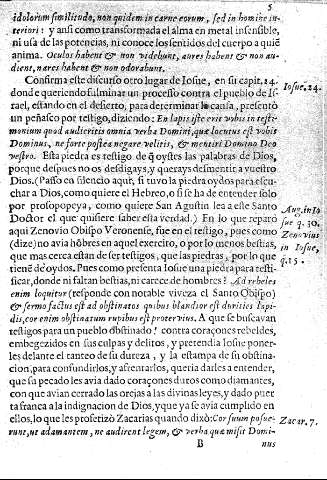 5
idolorum similitudo, non quidem in carne eorum, sed in homine in-
teriori: y ansi como transformada el alma en metal insensible,
ni usa de las potencias, ni conoce los sentidos del cuerpo a quiẽ
anima. Oculos habent & non videbunt, aures habent & non au-
dient, nares habent & non odorabunt.
Confirma este discurso otro lugar de Iosue, en su capit, 24.
donde queriendo fulminar un processo contra el pueblo de Is-
rael, estando en el desierto, para determinar la causa, presentò
un peñasco por testigo, diziendo: En lapis iste erit vobis in testi-
monium quod audieritis omnia verba Domini, quæ locutus est vobis
Dominus, ne forte postea negare velitis, & mentiri Domino Deo
vestro. Esta piedra es testigo de q̃ oystes las palabras de Dios,
porque despues no os desdigays, y querays desmentir a vuestro
Dios. (Passo en silencio aqui, si tuvo la piedra oydos para escu-
char a Dios, como quiere el Hebreo, o si se ha de entender solo
por prosopopeya, como quiere San Agustin lea a este Santo
Doctor el que quisiere saber esta verdad.) En lo que reparò
aqui Zenovio Obispo Veronense, fue en el testigo, pues como
(dize) no avia hõbres en aquel exercito, o por lo menos bestias,
que mas cerca estan de ser testigos, que las piedras, por lo que
tienē de oydos. Pues como presenta Iosue una piedra para testi-
ficar, donde ni faltan bestias, ni carece de hombres? Ad rebeles
enim loquitur (responde con notable viveza el Santo Obispo)
& sermo factus est ad obstinatos quibus blandior est durities lapi-
dis, cor enim obstinatum rupibus est protervius. A que se buscavan
testigos para un pueblo obstinado? contra coraçones rebeldes,
embegezidos en sus culpas y delitos, y pretendia Iosue poner-
les delante el tanteo de su dureza, y la estampa de su obstina-
cion, para confundirlos, y afrentarlos, queria darles a entender,
que su pecado les avia dado coraçones duros como diamantes,
con que avian cerrado las orejas a las divinas leyes, y dado puer
ta franca a la indignacion de Dios, y que ya se avia cumplido en
ellos, lo que les profetizò Zacarias quando dixo: Cor suum posue-
runt, ut adamantem, ne audirent legem, & verba quæ misit Domi-
B
nus
Iosue, 24.
Aug. in Io
q. 30.
Zenovius
in Iosue,
q. 15.
Zacar. 7.